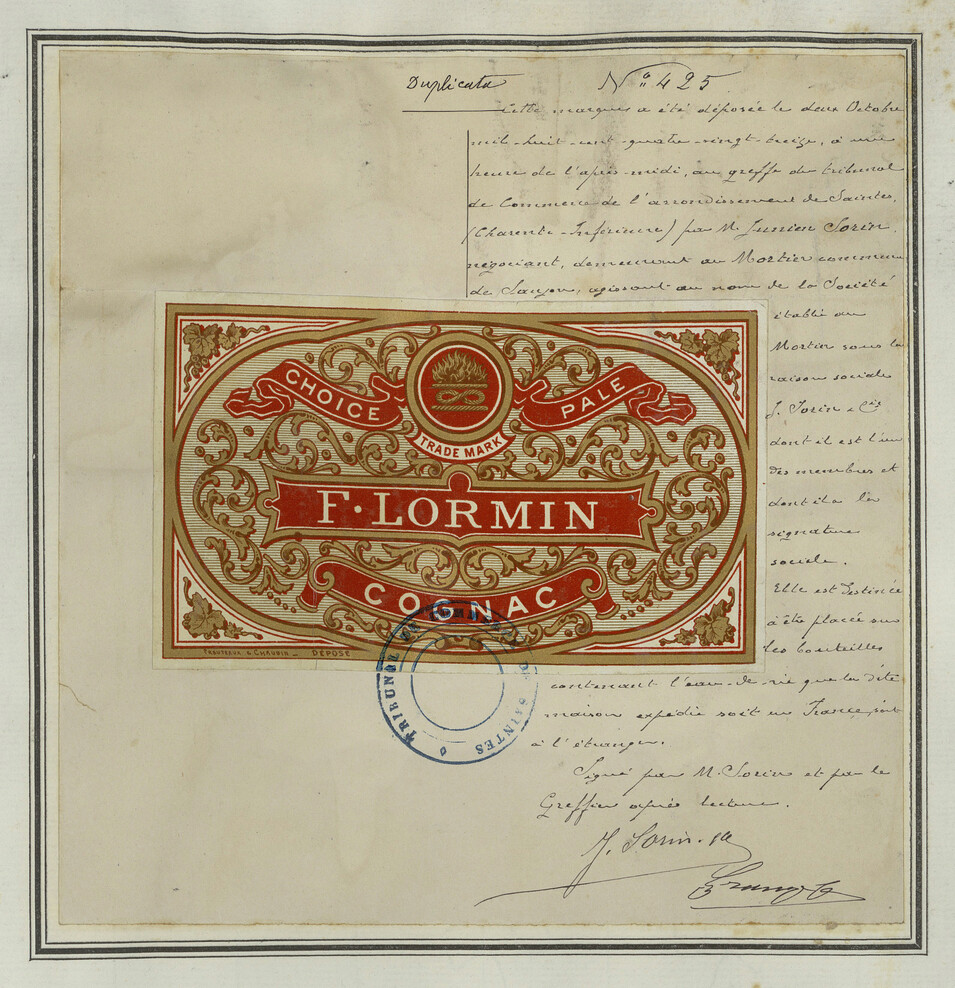 Duplicata
N° 425
Cette marque a été déposée le deux Octobre
mil-huit-cent-quatre-vingt-treize, à une
heure de l'après-midi, au greffe du tribunal
de Commerce de l'arrondissement de Saintes,
(Charente-Inférieure) par M. Junien Sorin,
négociant, demeurant au Mortier commune
de Saujon, agissant au nom de la Société
établie au
Mortier sous la
raison sociale
J. Sorin & Cie
dont il est l'un
des membres et
dont il a la
signature
sociale.
Elle est destinée
à être placée sur
les bouteilles
contenant l'eau-de-vie que la dite
maison expédie soit en France, soit
à l'étranger.
Signé par M. Sorin et par le
Greffier après lecture.
J. Sorin. &Cie
CHOICE
PALE
TRADE MARK
F. LORMIN
COGNAC
& CHAUVIN _ DÉPOSÉ
TRIBUNAL DE COMMERCE DE SAINTES